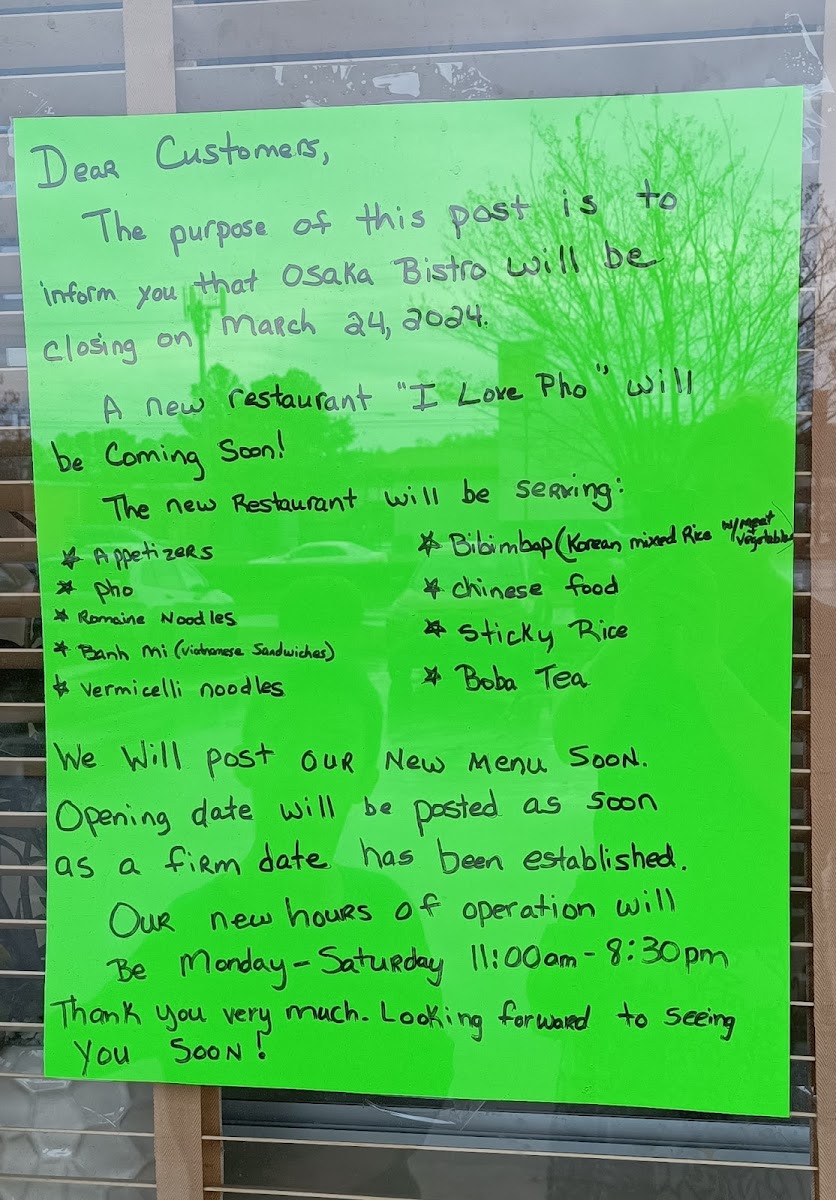 Dear Customers,
The purpose of this post is to
inform you that Osaka Bistro will be
closing on March 24, 2024.
A new restaurant "I Love Pho" will
be Coming Soon!
The new Restaurant will be serving:
* Appetizers
* Pho
* Romaine Noodles
* Banh Mi (Viatnanese Sandwiches)
* Vermicelli noodles
* Bibimbap (Korean mixed Rice w/meat + vegetables)
* Chinese food
* Sticky Rice
* Boba Tea
We Will post our New Menu Soon.
Opening date will be posted as soon
as a firm date has been established.
Our new hours of operation will
Be Monday - Saturday 11:00am - 8:30pm
Thank you very much. Looking forward to seeing
you Soon!